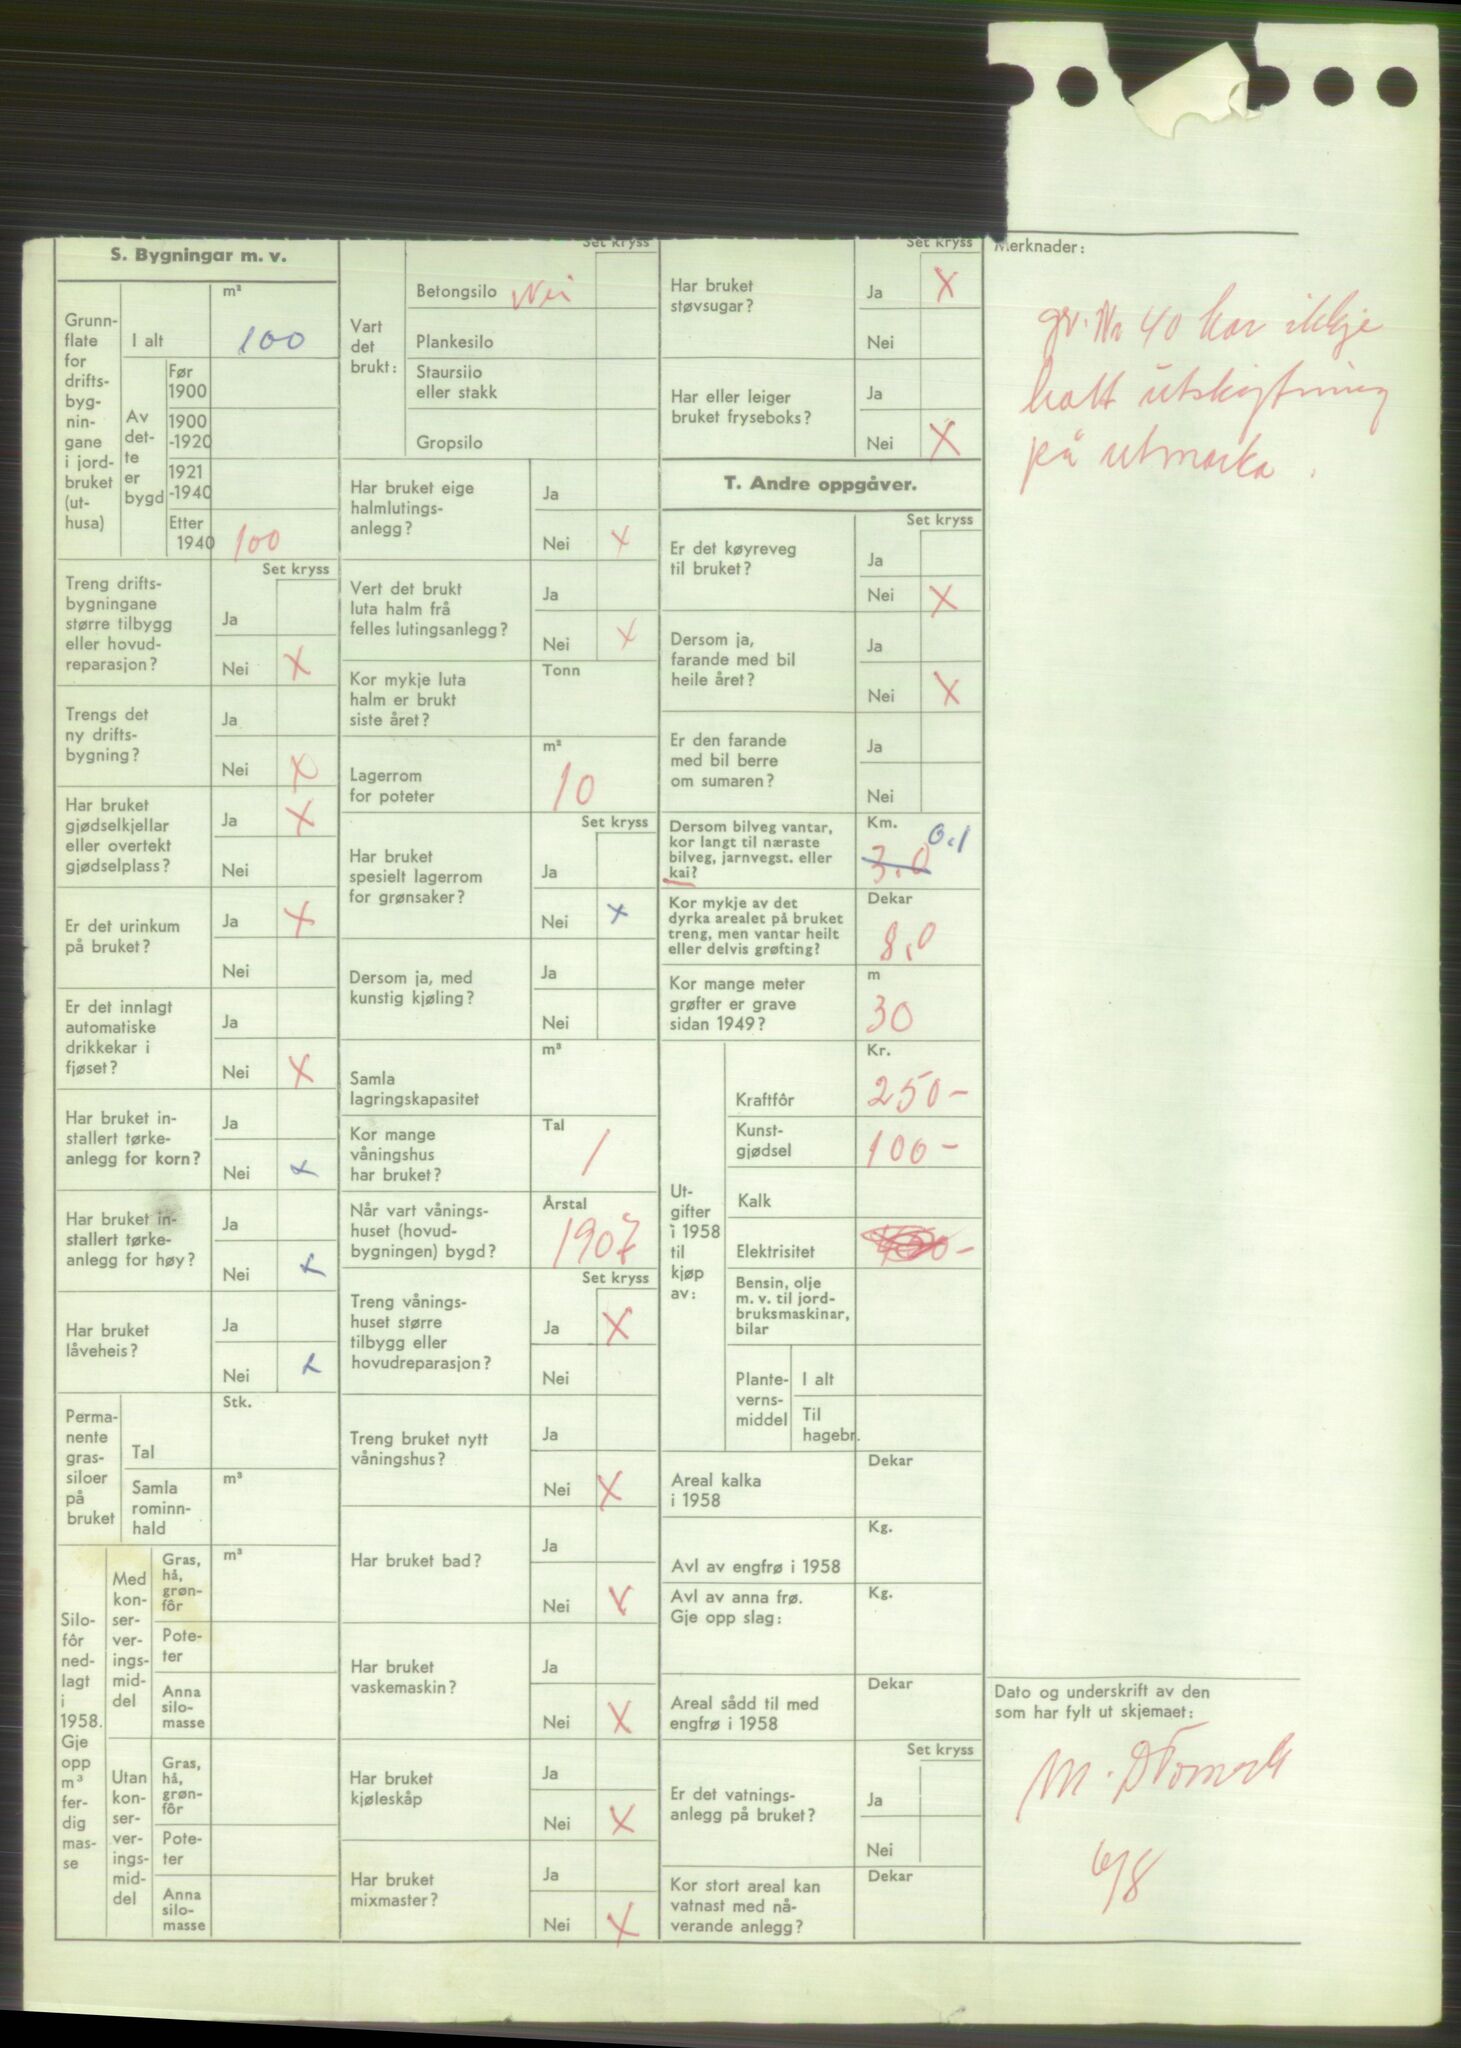 S. Bygningar m. v.
Grunn-
flate
for
drifts-
byg-
nin-
gane
i jord-
bruket
(ut-
husa)
m²
I alt
100
Av
det-
te
er
bygd
Før
1900
1900
-1920
1921
-1940
Etter
1940
100
Set kryss
Treng drifts-
bygningane
større tilbygg
eller hovud-
reparasjon?
Ja
Nei X
Trengs det
ny drifts-
bygning?
Ja
Nei X
Har bruket
gjødselkjellar
eller overtekt
gjødselplass?
Ja X
Nei
Er det urinkum
på bruket?
Ja X
Nei
Er det innlagt
automatiske
drikkekar i
fjøset?
Ja
Nei X
Har bruket in-
stallert tørke-
anlegg for korn?
Ja
Nei x
Har bruket in-
stallert tørke-
anlegg for høy?
Ja
Nei x
Har bruket
låveheis?
Ja
Nei x
Perma-
nente
gras-
siloer
på
bruket
Stk.
Tal
Samla
rominn-
hald
m³
Silo-
fôr
ned-
lagt
i
1958.
Gje
opp
m³
fer-
dig
mas-
se
Med
kon-
ser-
ver-
ings-
mid-
del
Gras,
hå,
grøn-
fôr
m³
Pote-
ter
Anna
silo-
masse
Utan
kon-
ser-
ver-
ings-
mid-
del
Gras,
hå,
grøn-
fôr
Pote-
ter
Anna
silo-
masse
Set kryss
Vart
det
brukt:
Betongsilo Nei
Plankesilo
Staursilo
eller stakk
Gropsilo
Har bruket eige
halmlutings-
anlegg?
Ja
Nei X
Vert det brukt
luta halm frå
felles lutingsanlegg?
Ja
Nei X
Kor mykje luta
halm er brukt
siste året?
Tonn
Lagerrom
for poteter
m²
10
Set kryss
Har bruket
spesielt lagerrom
for grønsaker?
Ja
Nei x
Dersom ja, med
kunstig kjøling?
Ja
Nei
Samla
lagringskapasitet
m³
Kor mange
våningshus
har bruket?
Tal
1
Når vart vånings-
huset (hovud-
bygningen) bygd?
Årstal
1907
Set kryss
Treng vånings-
huset større
tilbygg eller
hovudreparasjon?
Ja X
Nei
Treng bruket nytt
våningshus?
Ja
Nei X
Har bruket bad?
Ja
Nei X
Har bruket
vaskemaskin?
Ja
Nei X
Har bruket
kjøleskåp
Ja
Nei X
Har bruket
mixmaster?
Ja
Nei X
Set kryss
Har bruket
støvsugar?
Ja X
Nei
Har eller leiger
bruket fryseboks?
Ja
Nei X
T. Andre oppgåver.
Set kryss
Er det køyreveg
til bruket?
Ja
Nei X
Dersom ja,
farande med bil
heile året?
Ja
Nei X
Er den farande
med bil berre
om sumaren?
Ja
Nei
Dersom bilveg vantar,
kor langt til næraste
bilveg, jarnvegst. eller
kai?
Km.
0,1
3,0
Kor mykje av det
dyrka arealet på bruket
treng, men vantar heilt
eller delvis grøfting?
Dekar
8,0
Kor mange meter
grøfter er grave
sidan 1949?
m
30
Ut-
gifter
i 1958
til
kjøp
av:
Kr.
Kraftfôr 250-
Kunst-
gjødsel 100-
Kalk
Elektrisitet
Bensin, olje
m. v. til jord-
bruksmaskinar,
bilar
Plante-
verns-
middel
I alt
Til
hagebr.
Areal kalka
i 1958
Dekar
Avl av engfrø i 1958
Kg.
Avl av anna frø.
Gje opp slag:
Kg.
Areal sådd til med
engfrø i 1958
Dekar
Set kryss
Er det vatnings-
anlegg på bruket?
Ja
Nei
Kor stort areal kan
vatnast med nå-
verande anlegg?
Dekar
Merknader:
gr. Nr 40 har ikkje
hatt utskiftning
på utmarka.
Dato og underskrift av den
som har fylt ut skjemaet:
M.
6/8